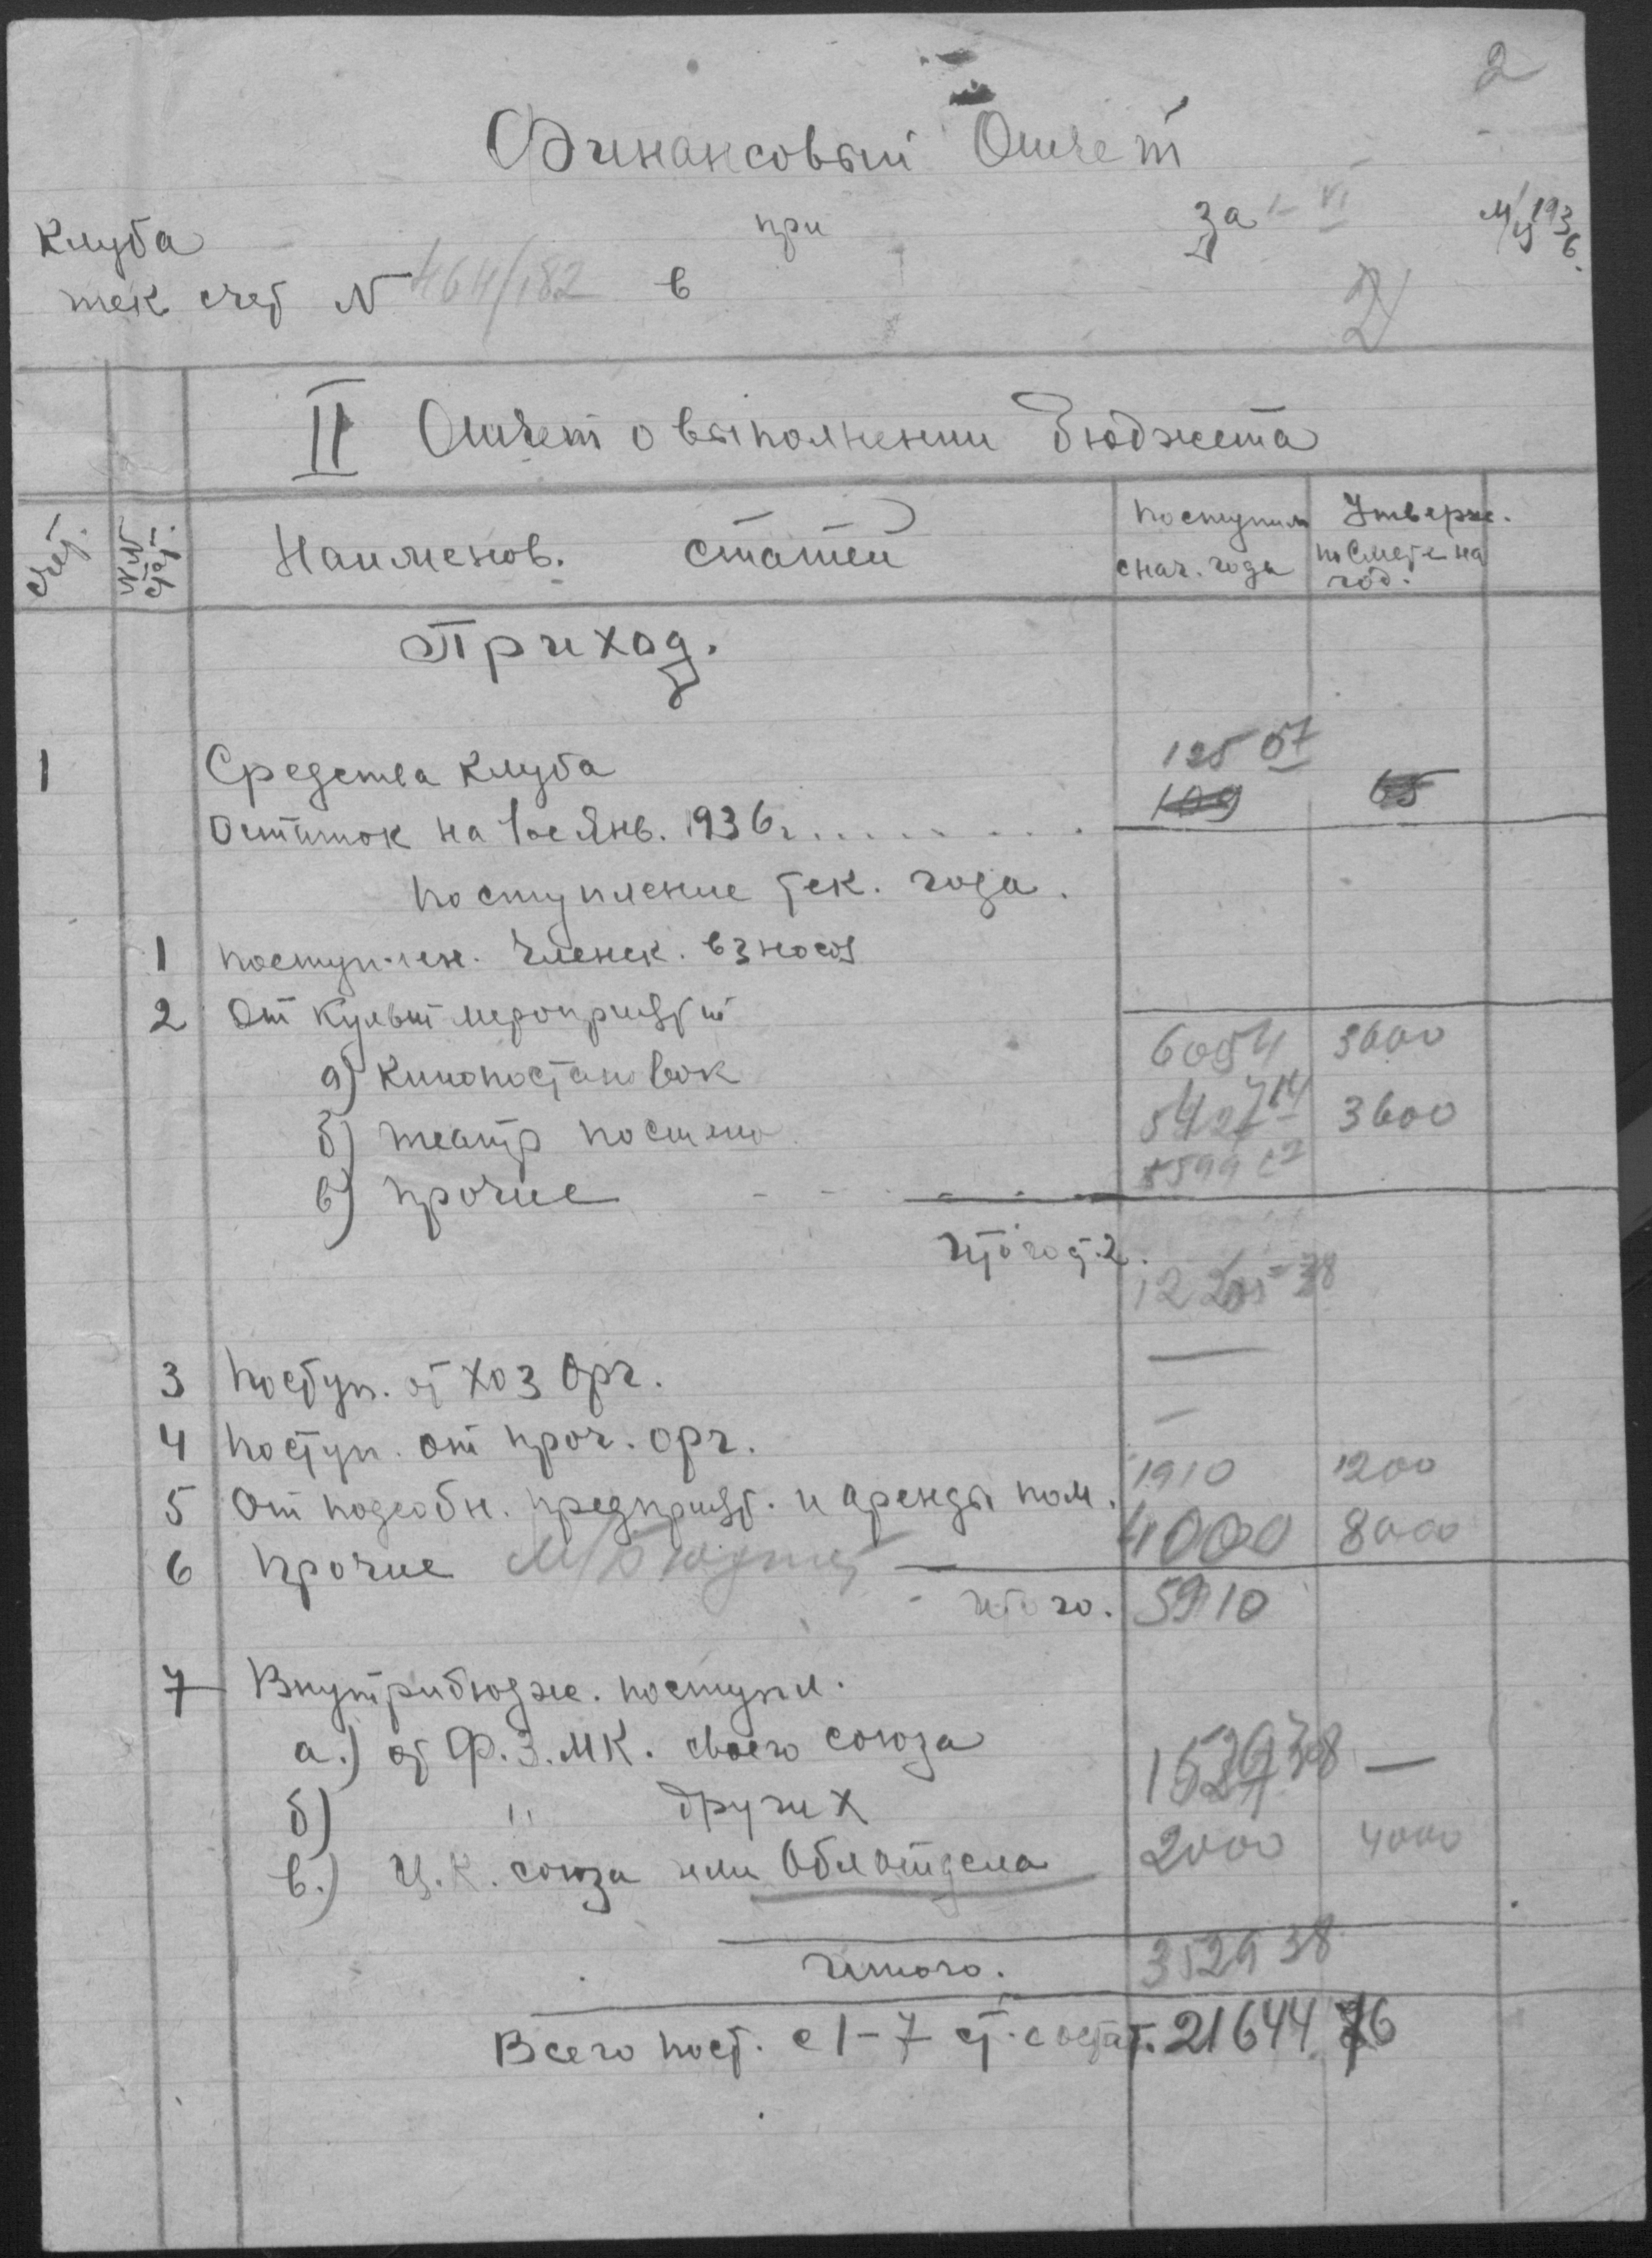 2
Финансовый Отчет
Клуба при за I-VI м/ц 1936.
тек. счет N 464/182 в
2
II Отчет о выполнении бюджета
Счет. NN стат. Наименов. статей Поступило с нач. года Утверж. по смете на год.
Приход.
1 Средства Клуба 125 57
Остаток на 1ое Янв. 1936г......... 109 65
Поступление тек. года.
1 Поступлен. Членск. взносов
2 От Культ мероприятий
а) Кинопостановок 6054 3600
б) театр постано 5427 14 3600
в) прочие
Итого ст. 2. 12205 38
3 Поступ. от хоз Орг. —
4 Поступ. от проч. орг. —
5 От подсобн. предприят. и аренды пом. 1910 1200
6 Прочие М/бюджет 4000 8000
Итого. 5910
7 Внутрибюдж. поступл.
а.) от Ф.З.МК. своего союза 1529 38 —
б) " других
в.) Ц.К. союза или Облотдела 2000 4000
Итого. 3529 38
Всего пост. с 1-7 ст. с остат. 21644 76